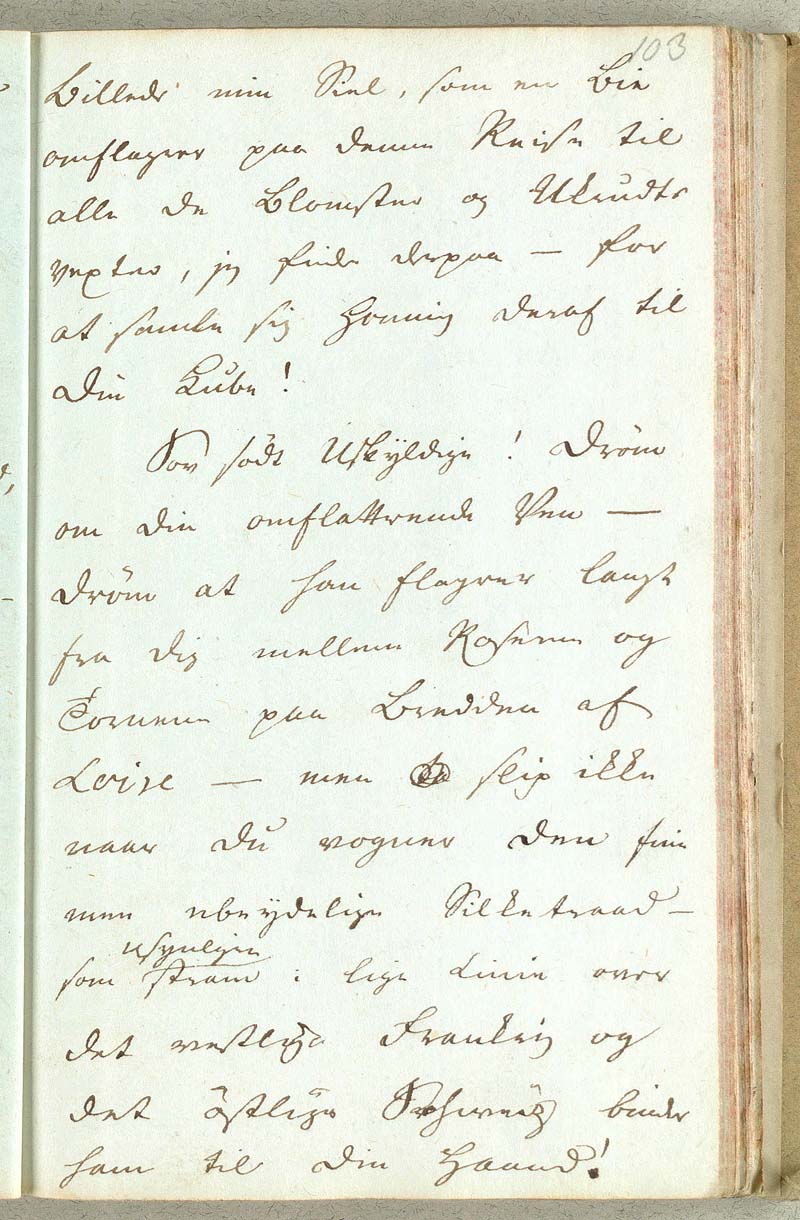 103
Billede min Siel, som en Bie
omflagrer paa denne Reise til
alle de Blomster og Ukrudts
vexter, jeg finder derpaa — for
at samle sig Honnig deraf til
din Kube!
Sov sødt Uskyldige! Drøm
om din omflattrende Ven —
Drøm at han flagrer langt
fra dig mellem Roserne og
Tornene paa Bredden af
Loire — men slip ikke
naar du vogner den fine
men ubrydelige Silketraad —
usynligen
som stram i lige Linie over
det vestlige Frankrig og
det østlige Schweiz binder
ham til din Haand!